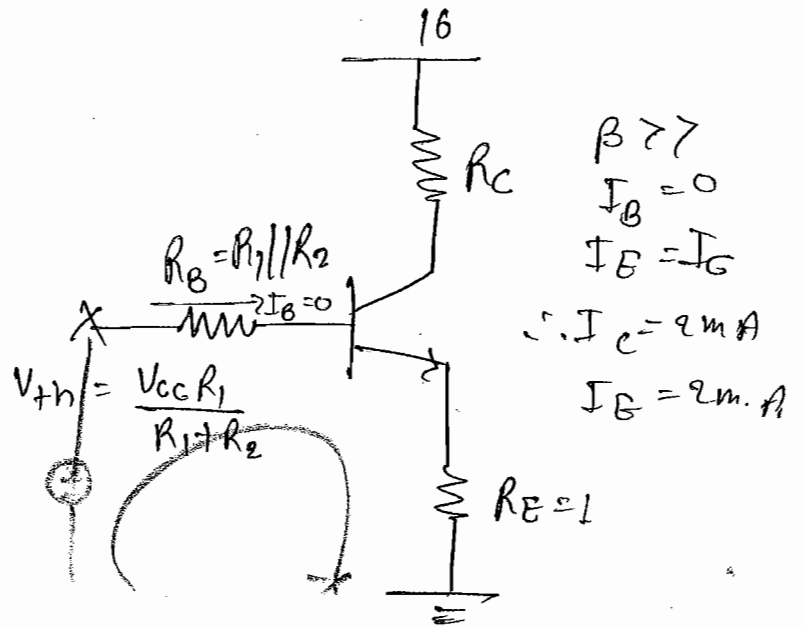 16
R_C
β >>
I_B = 0
I_E = I_C
∴ I_C = 2mA
I_E = 2m.A
R_B = R_1 || R_2
I_B = 0
V_th = V_CC R_1 / R_1 + R_2
R_E = 1